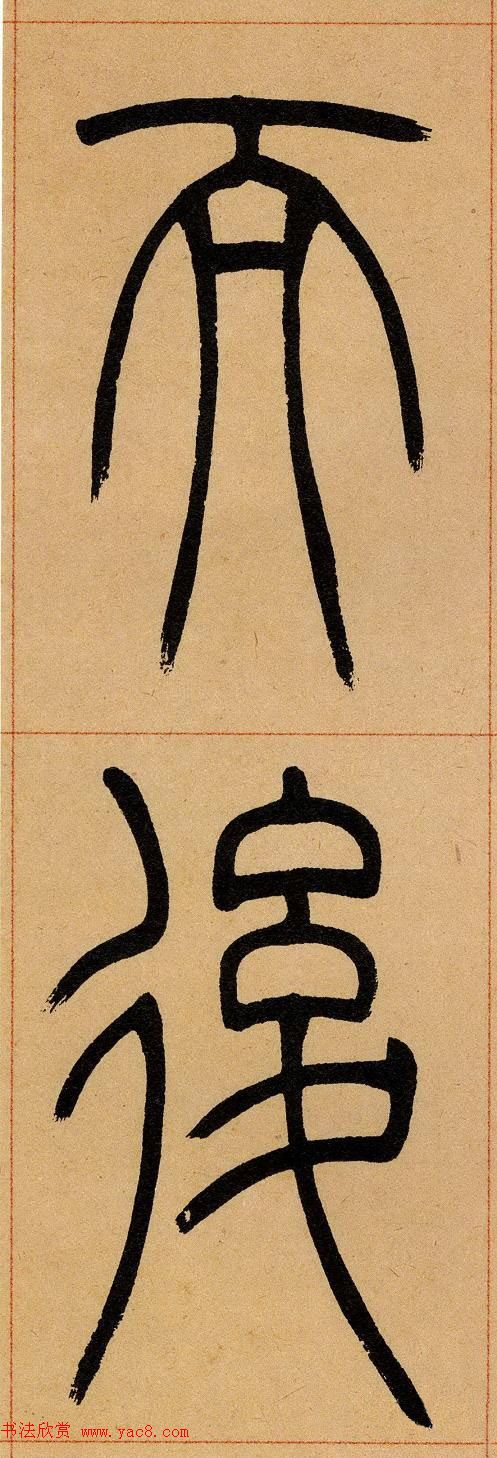 而
後
书法欣赏 www.yac8.com